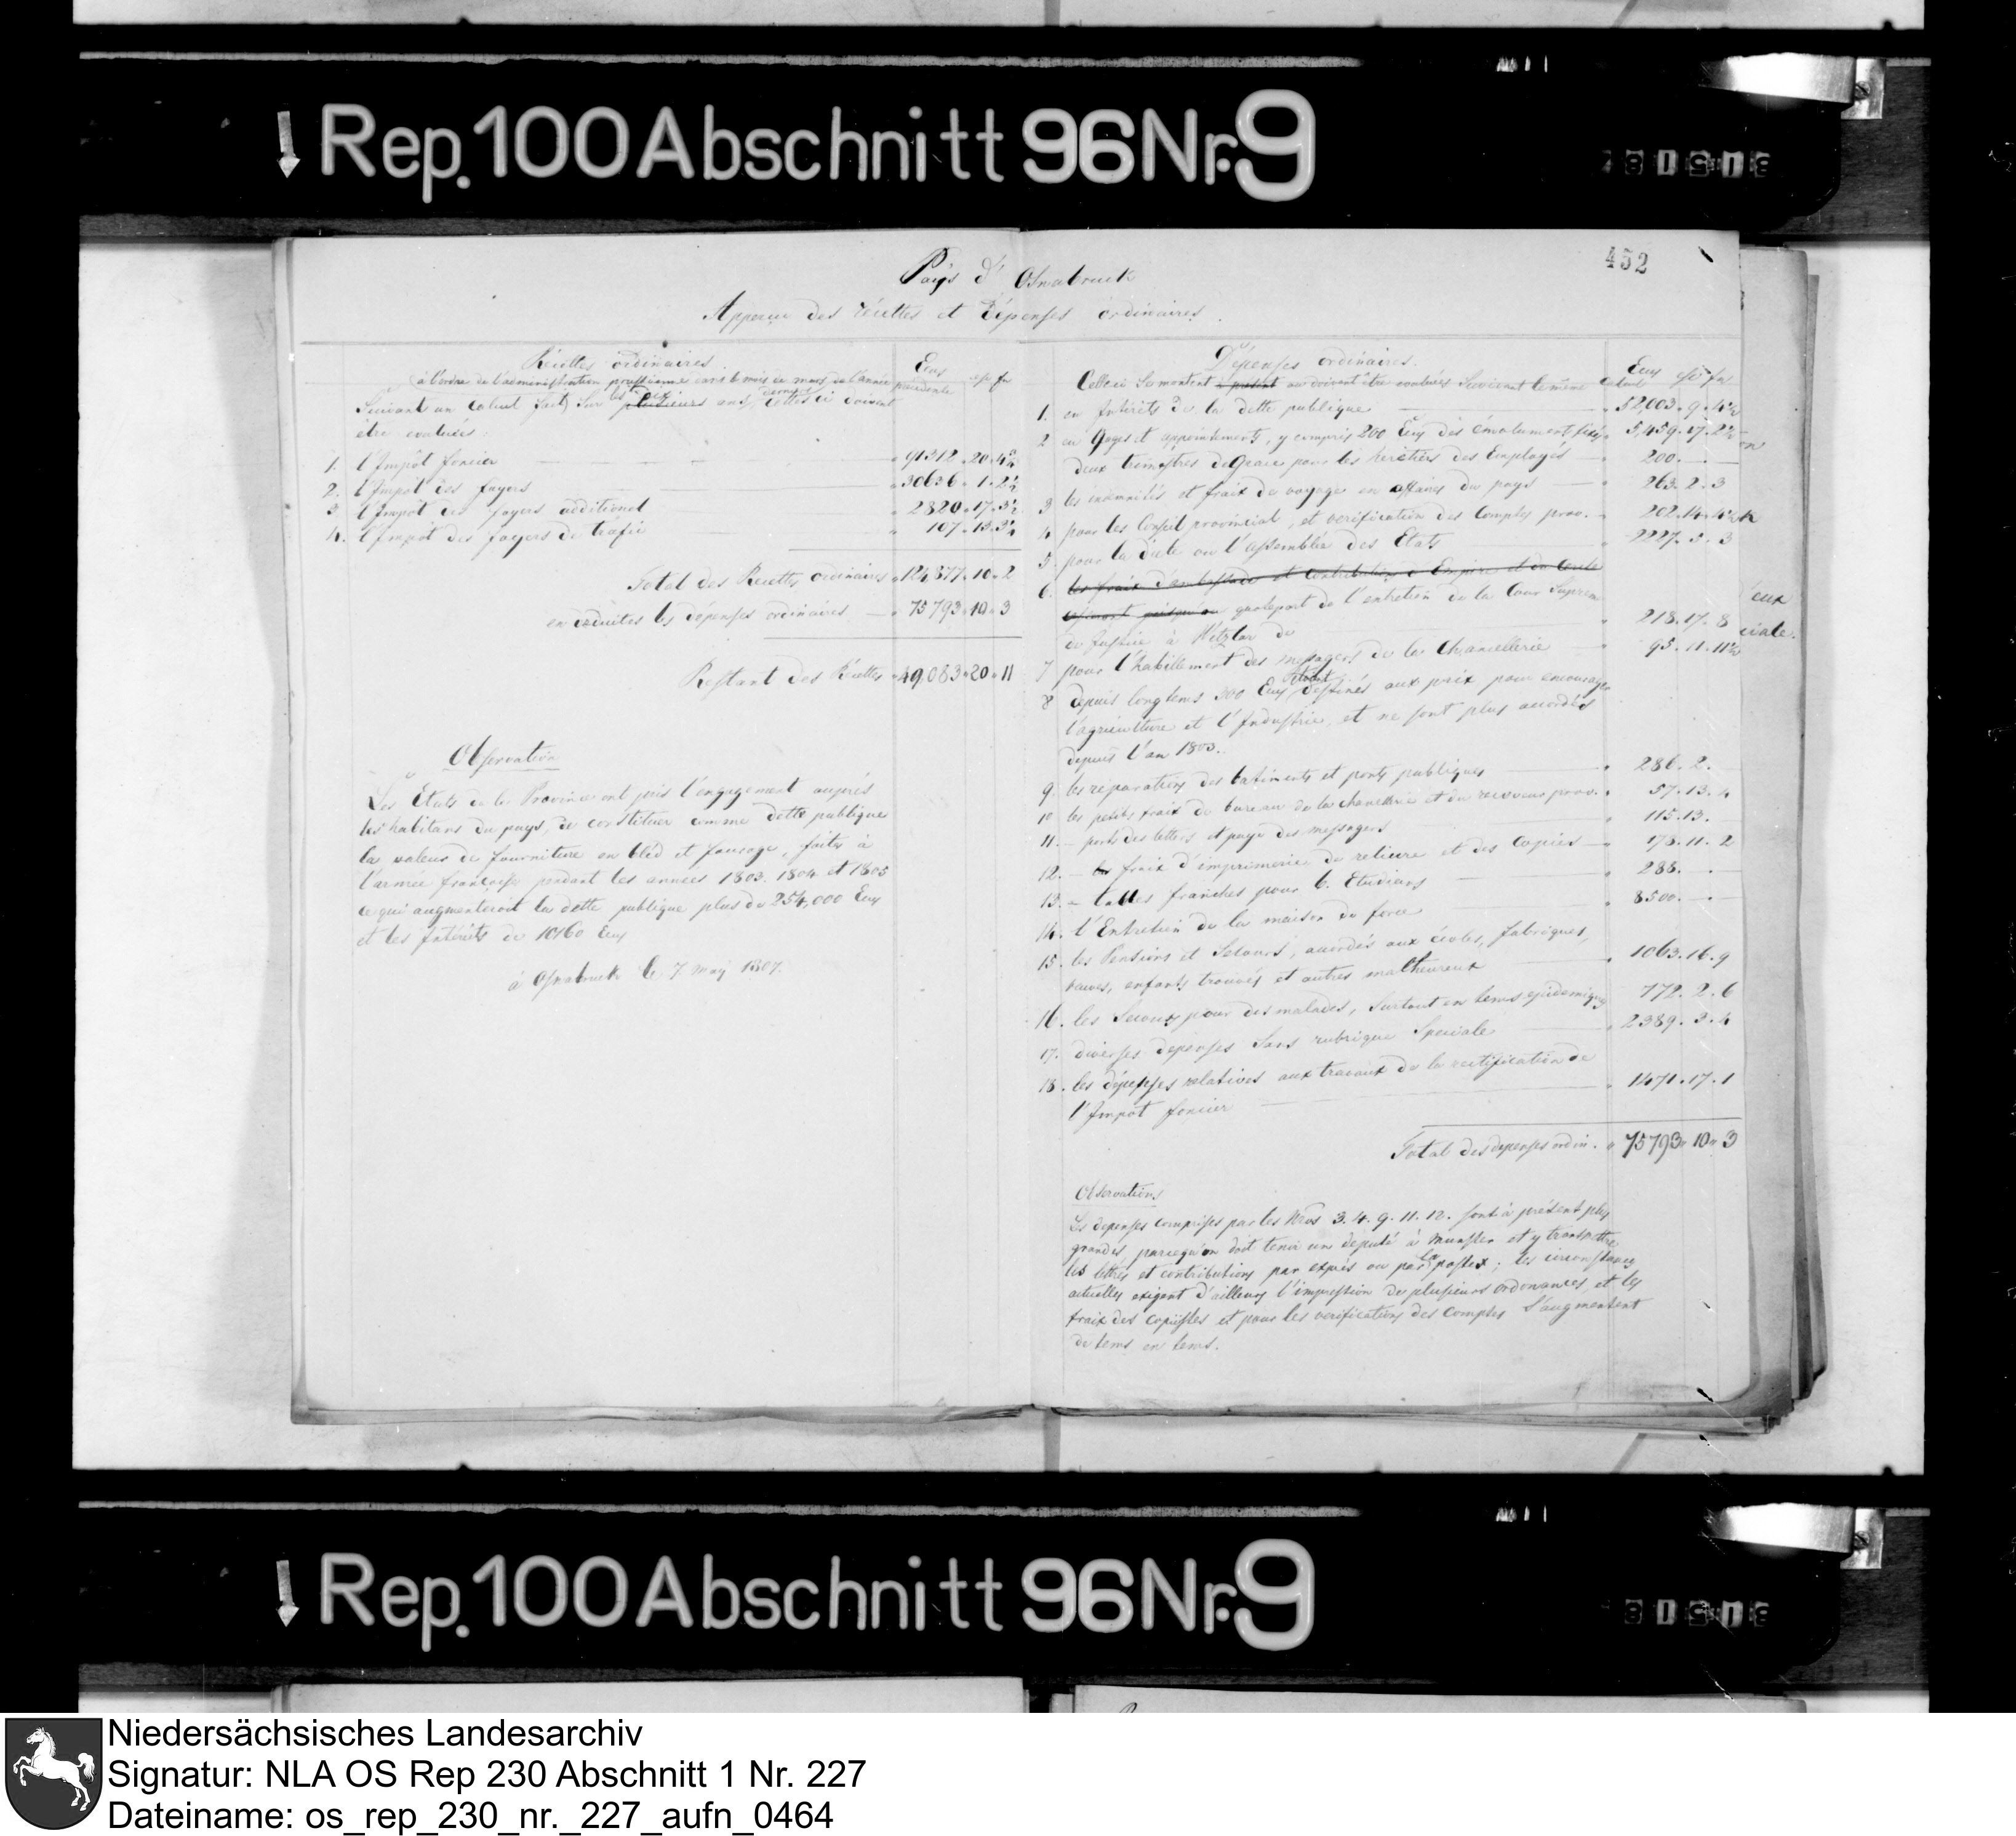 Rep. 100 Abschnitt 96 Nr. 9
452
Pays d' Osnabruck
Apperçu des récettes et dépenses ordinaires.
Récettes ordinaires. Ecus
(à l'ordre de l'administration prussienne dans le mois de mars de l'année précedente
Suivant un calcul fait sur les dix plusieurs ans, celles ci doivent
être evaluées:
1. l'Impôt foncier 91312. 20. 4
2. l'Impôt des foyers 30636. 1. 2
3 l'Impôt des foyers additionel 2820. 17. 3
4. l'Impôt des foyers de trafic 107. 13. 3
Total des Recettes ordinaires 124877. 10. 2
en déduites les dépenses ordinaires 75793. 10. 3
Restant des Récettes 49,083. 20. 11
Observation
Les Etats de la Province ont pris l'engagement auprès
les habitans du pays, de constituer comme dette publique
la valeur de fourniture en bléd et fourage, faite à
l'armée françoise pendant les années 1803. 1804 et 1805
ce qui augmenteroit la dette publique plus de 254,000 Ecus
et les Intérêts de 10160 Ecus
à Osnabruck le 7 may 1807.
Dépenses ordinaires. Ecus
Celles ci se montent à présent ou doivent être evaluées suivant le même calcul
1. en Intérêts de la dette publique 52,003. 9. 4
2 en Gages et appointements, y compris 200 Ecus des émoluments fixés 5,459. 17. 2
deux trimestres de grace pour les heretiers des Employés 200.
3 les indemnités et fraix de voyage en affaires du pays 263. 2. 3
4 pour les Conseil provincial, et verification des Comptes prov. 202. 14. 4
5. pour la diete ou l'assemblée des Etats 2227. 5. 3
6. les fraix d'ambassade et contribution à l'Empire et du Cercle
quotepart de l'entretien de la Cour Supreme
de Justice à Wetzlar de 218. 17. 8
7 pour l'habillement des messagers de la Chancellerie 95. 11. 11
8 depuis longtems 300 Ecus étoient destinés aux prix pour encourager
l'agriculture et l'Industrie, et ne sont plus accordés
depuis l'an 1803.
9 les réparations des batiments et ponts publiques 286. 2.
10 les petits fraix de bureau de la chancellerie et du receveur prov. 57. 13. 4
11. - ports des lettres et paye des messagers 115. 13.
12. - les fraix d'imprimerie, de reliure et des Copies 178. 11. 2
13. - tables franches pour 6. Etudians 288.
14. l'Entretien de la maison de force 8500.
15. les Pensions et Secours, accordés aux écoles, fabriques,
veuves, enfants trouvés et autres malheureux 1063. 16. 9
16. les Secours pour des malades, surtout en tems epidemiques 772. 2. 6
17. diverses depenses sans rubrique Speciale 2389. 3. 4
18. les dépenses relatives aux travaux de la rectification de
l'Impôt foncier 1471. 17. 1
Total des depenses ordin. 75793. 10. 3
Observations
Les depenses comprises par les Nros 3. 4. 9. 11. 12. sont à présent plus
grandes, parcequ'on doit tenir un deputé à Munster et y transmettre
les lettres et contributions par exprès ou par la postes; les circonstances
actuelles exigent d'ailleurs l'impression de plusieurs ordonances, et les
fraix des copiistes et pour les verifications des Comptes s'augmentent
de tems en tems.
Rep. 100 Abschnitt 96 Nr. 9
Niedersächsisches Landesarchiv
Signatur: NLA OS Rep 230 Abschnitt 1 Nr. 227
Dateiname: os_rep_230_nr._227_aufn_0464